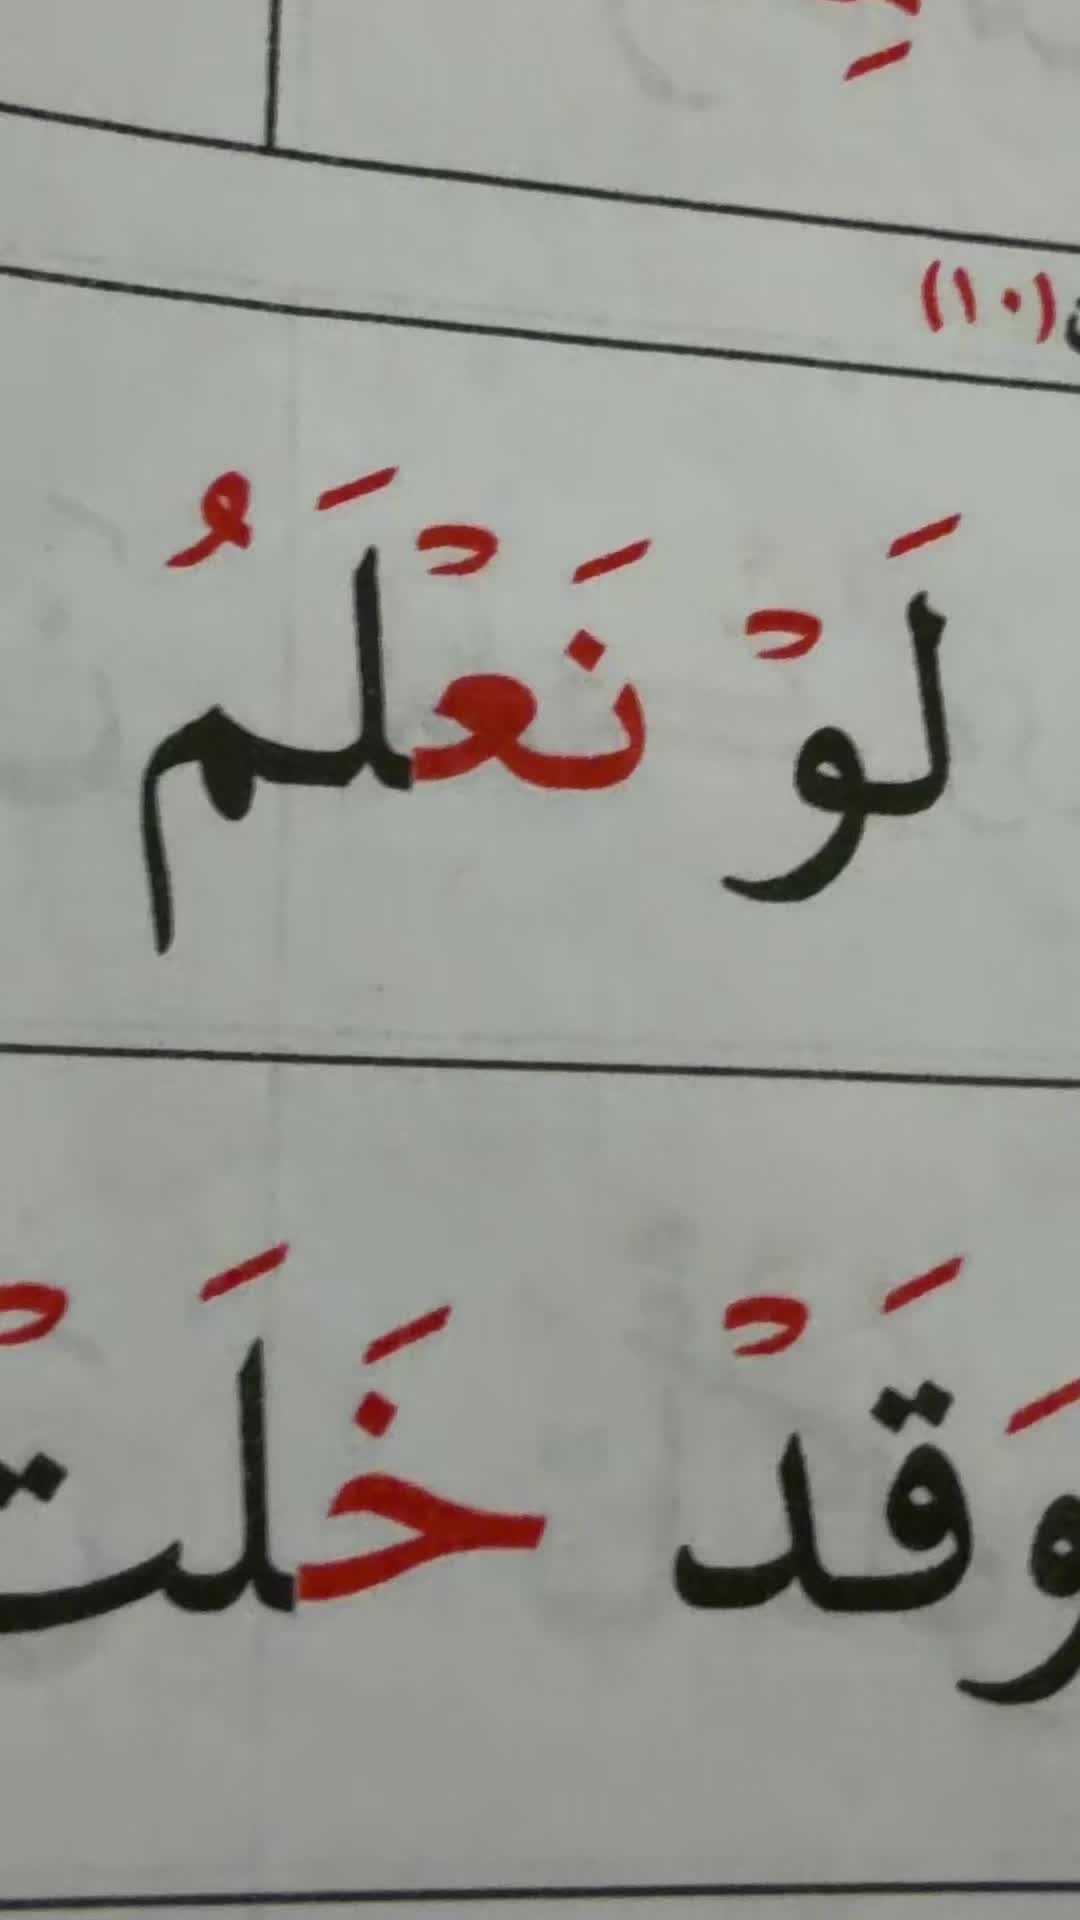 (١٠)
لَوْ نَعْلَمُ
وَقَدْ خَلَتْ